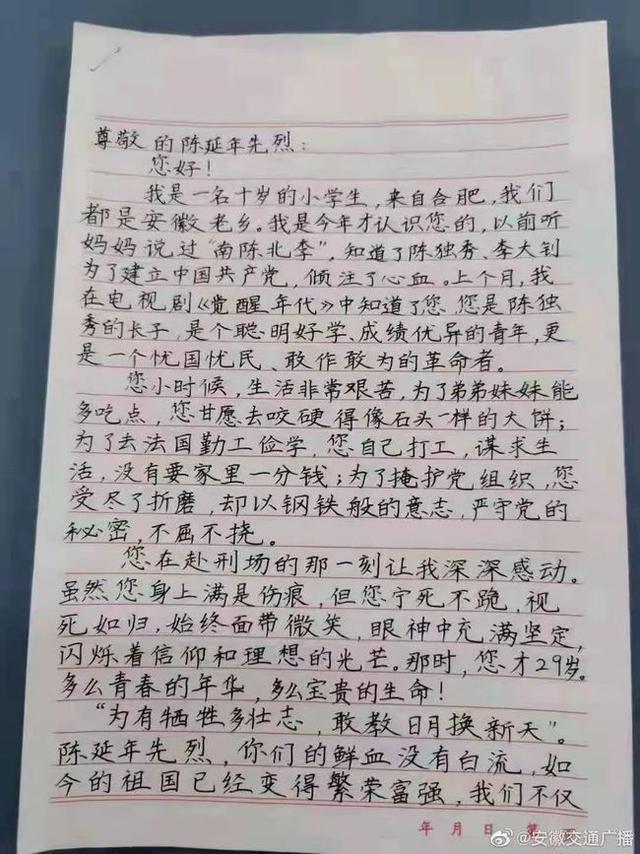 尊敬的陈延年先烈：
您好！
我是一名十岁的小学生，来自合肥，我们
都是安徽老乡。我是今年才认识您的，以前听
妈妈说过“南陈北李”，知道了陈独秀、李大钊
为了建立中国共产党，倾注了心血。上个月，我
在电视剧《觉醒年代》中知道了您，您是陈独
秀的长子，是个聪明好学、成绩优异的青年，更
是一个忧国忧民、敢作敢为的革命者。
您小时候，生活非常艰苦，为了弟弟妹妹能
多吃点，您甘愿去咬硬得像石头一样的大饼；
为了去法国勤工俭学，您自己打工，谋求生
活，没有要家里一分钱；为了掩护党组织，您
受尽了折磨，却以钢铁般的意志，严守党的
秘密，不屈不挠。
您在赴刑场的那一刻让我深深感动。
虽然您身上满是伤痕，但您宁死不跪，视
死如归，始终面带微笑，眼神中充满坚定，
闪烁着信仰和理想的光芒。那时，您才29岁。
多么青春的年华，多么宝贵的生命！
“为有牺牲多壮志，敢教日月换新天”。
陈延年先烈，你们的鲜血没有白流，如
今的祖国已经变得繁荣富强，我们不仅
年 月 日 第
@安徽交通广播